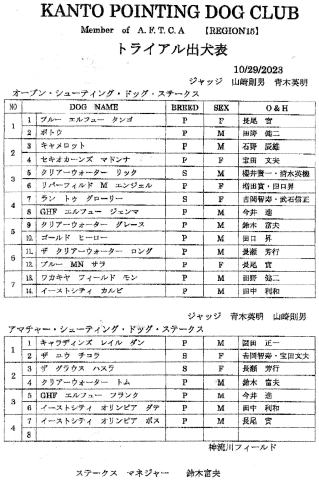 KANTO POINTING DOG CLUB
Member of A.F.T.C.A 【REGION15】
トライアル出犬表
10/29/2023
ジャッジ 山崎則男 青木英明
オープン・シューティング・ドッグ・ステークス
NO DOG NAME BREED SEX O & H
1 1 ブルー エルフュー タンゴ P F 長尾 實
2 ボトウ P M 田野 健二
2 3 キャメロット P M 石野 辰雄
4 セキオカーンズ マドンナ P F 宝田 文夫
3 5 クリアーウォーター リック S M 櫻井賢一・清水英機
6 リバーフィールド M エンジェル P F 増田實・田口昇
4 7 ラン トゥ グローリー S F 吉岡智寿・武石信正
8 GHF エルフュー ジェンマ P M 今井 進
5 9 クリアーウォーター グレース P M 鈴木 富夫
10. ゴールド ヒーロー P M 田口 昇
6 11. ザ クリアーウォーター ロング P M 長瀬 芳行
12. ブルー MN サラ P F 長尾 實
7 13. ワカキヤ フィールド モン P M 田野 健二
14. イーストシティ カルビ P M 田中 利和
ジャッジ 青木英明 山崎則男
アマチャー・シューティング・ドッグ・ステークス
1 1 キャラディンズ レイル ダン P M 園田 正一
2 ザ ユウ チコラ S F 吉岡智寿・宝田文夫
2 3 ザ グラウス ハスラ S F 長瀬 芳行
4 クリアーウォーター トム P M 鈴木 富夫
3 5 GHF エルフュー フランク P M 今井 進
6 イーストシティ オリンピア ダテ P M 田中 利和
4 7 イーストシティ オリンピア ボス P M 長尾 實
8
神流川フィールド
ステークス マネジャー 鈴木富夫